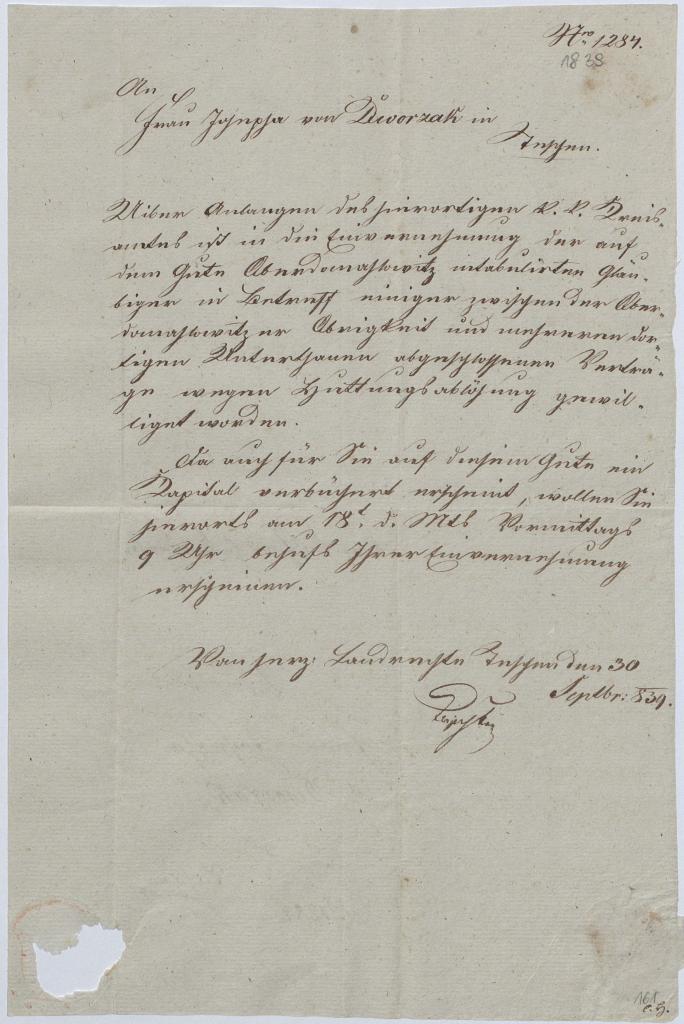 Nro 1284.
1839
An
Frau Josepha von Dworzak in
Teschen.
Uiber Anlangen des hierortigen k. k. Kreis-
amtes ist in die Einvernehmung der auf
dem Gute Oberdomaslowitz intabulirten Gläu-
biger in Betreff einiger zwischen der Ober-
domaslowitzer Obrigkeit und mehreren dor-
tigen Unterthanen abgeschlossenen Verträ-
ge wegen Huttungsablösung gewil-
liget worden.
Da auch für Sie auf diesem Gute ein
Kapital verbüchert erscheint, wollen Sie
hierorts am 18t. d. Mts Vormittags
9 Uhr behufs Ihrer Einvernehmung
erscheinen.
Vom herz: Landrechte Teschen den 30
Septbr: 839.
161